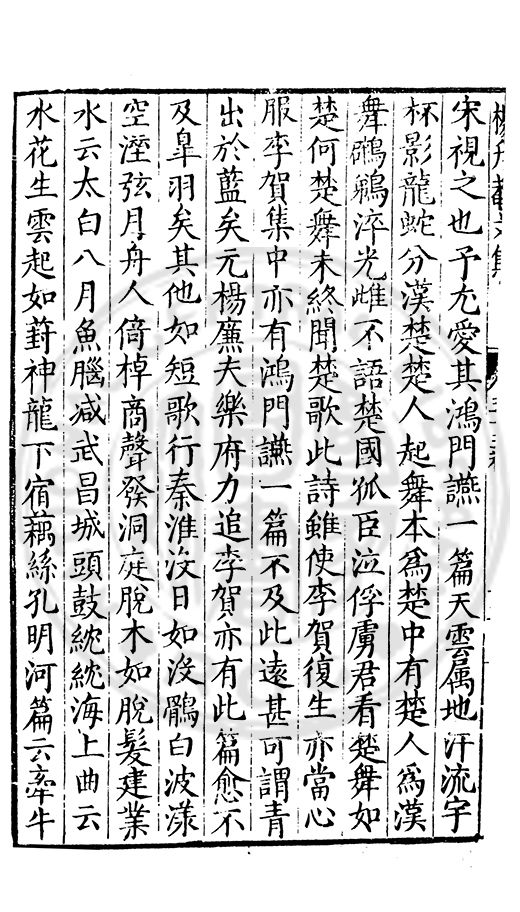 宋視之也予尢愛其鴻門讌一篇天雲属地汗流宇
杯影龍蛇分漢楚楚人起舞本爲楚中有楚人爲漢
舞鸊鵜淬光雌不語楚國孤臣泣俘虜君看楚舞如
楚何楚舞未終聞楚歌此詩雖使李賀復生亦當心
服李賀集中亦有鴻門讌一篇不及此遠甚可謂青
出於藍矣元楊廉夫樂府力追李賀亦有此篇愈不
及臯羽矣其他如短歌行秦淮没日如没鶻白波漾
空溼弦月舟人倚棹商聲發洞庭脫木如脫髮建業
水云太白八月魚腦減武昌城頭鼓紞紞海上曲云
水花生雲起如葑神龍下宿藕絲孔明河篇云牽牛